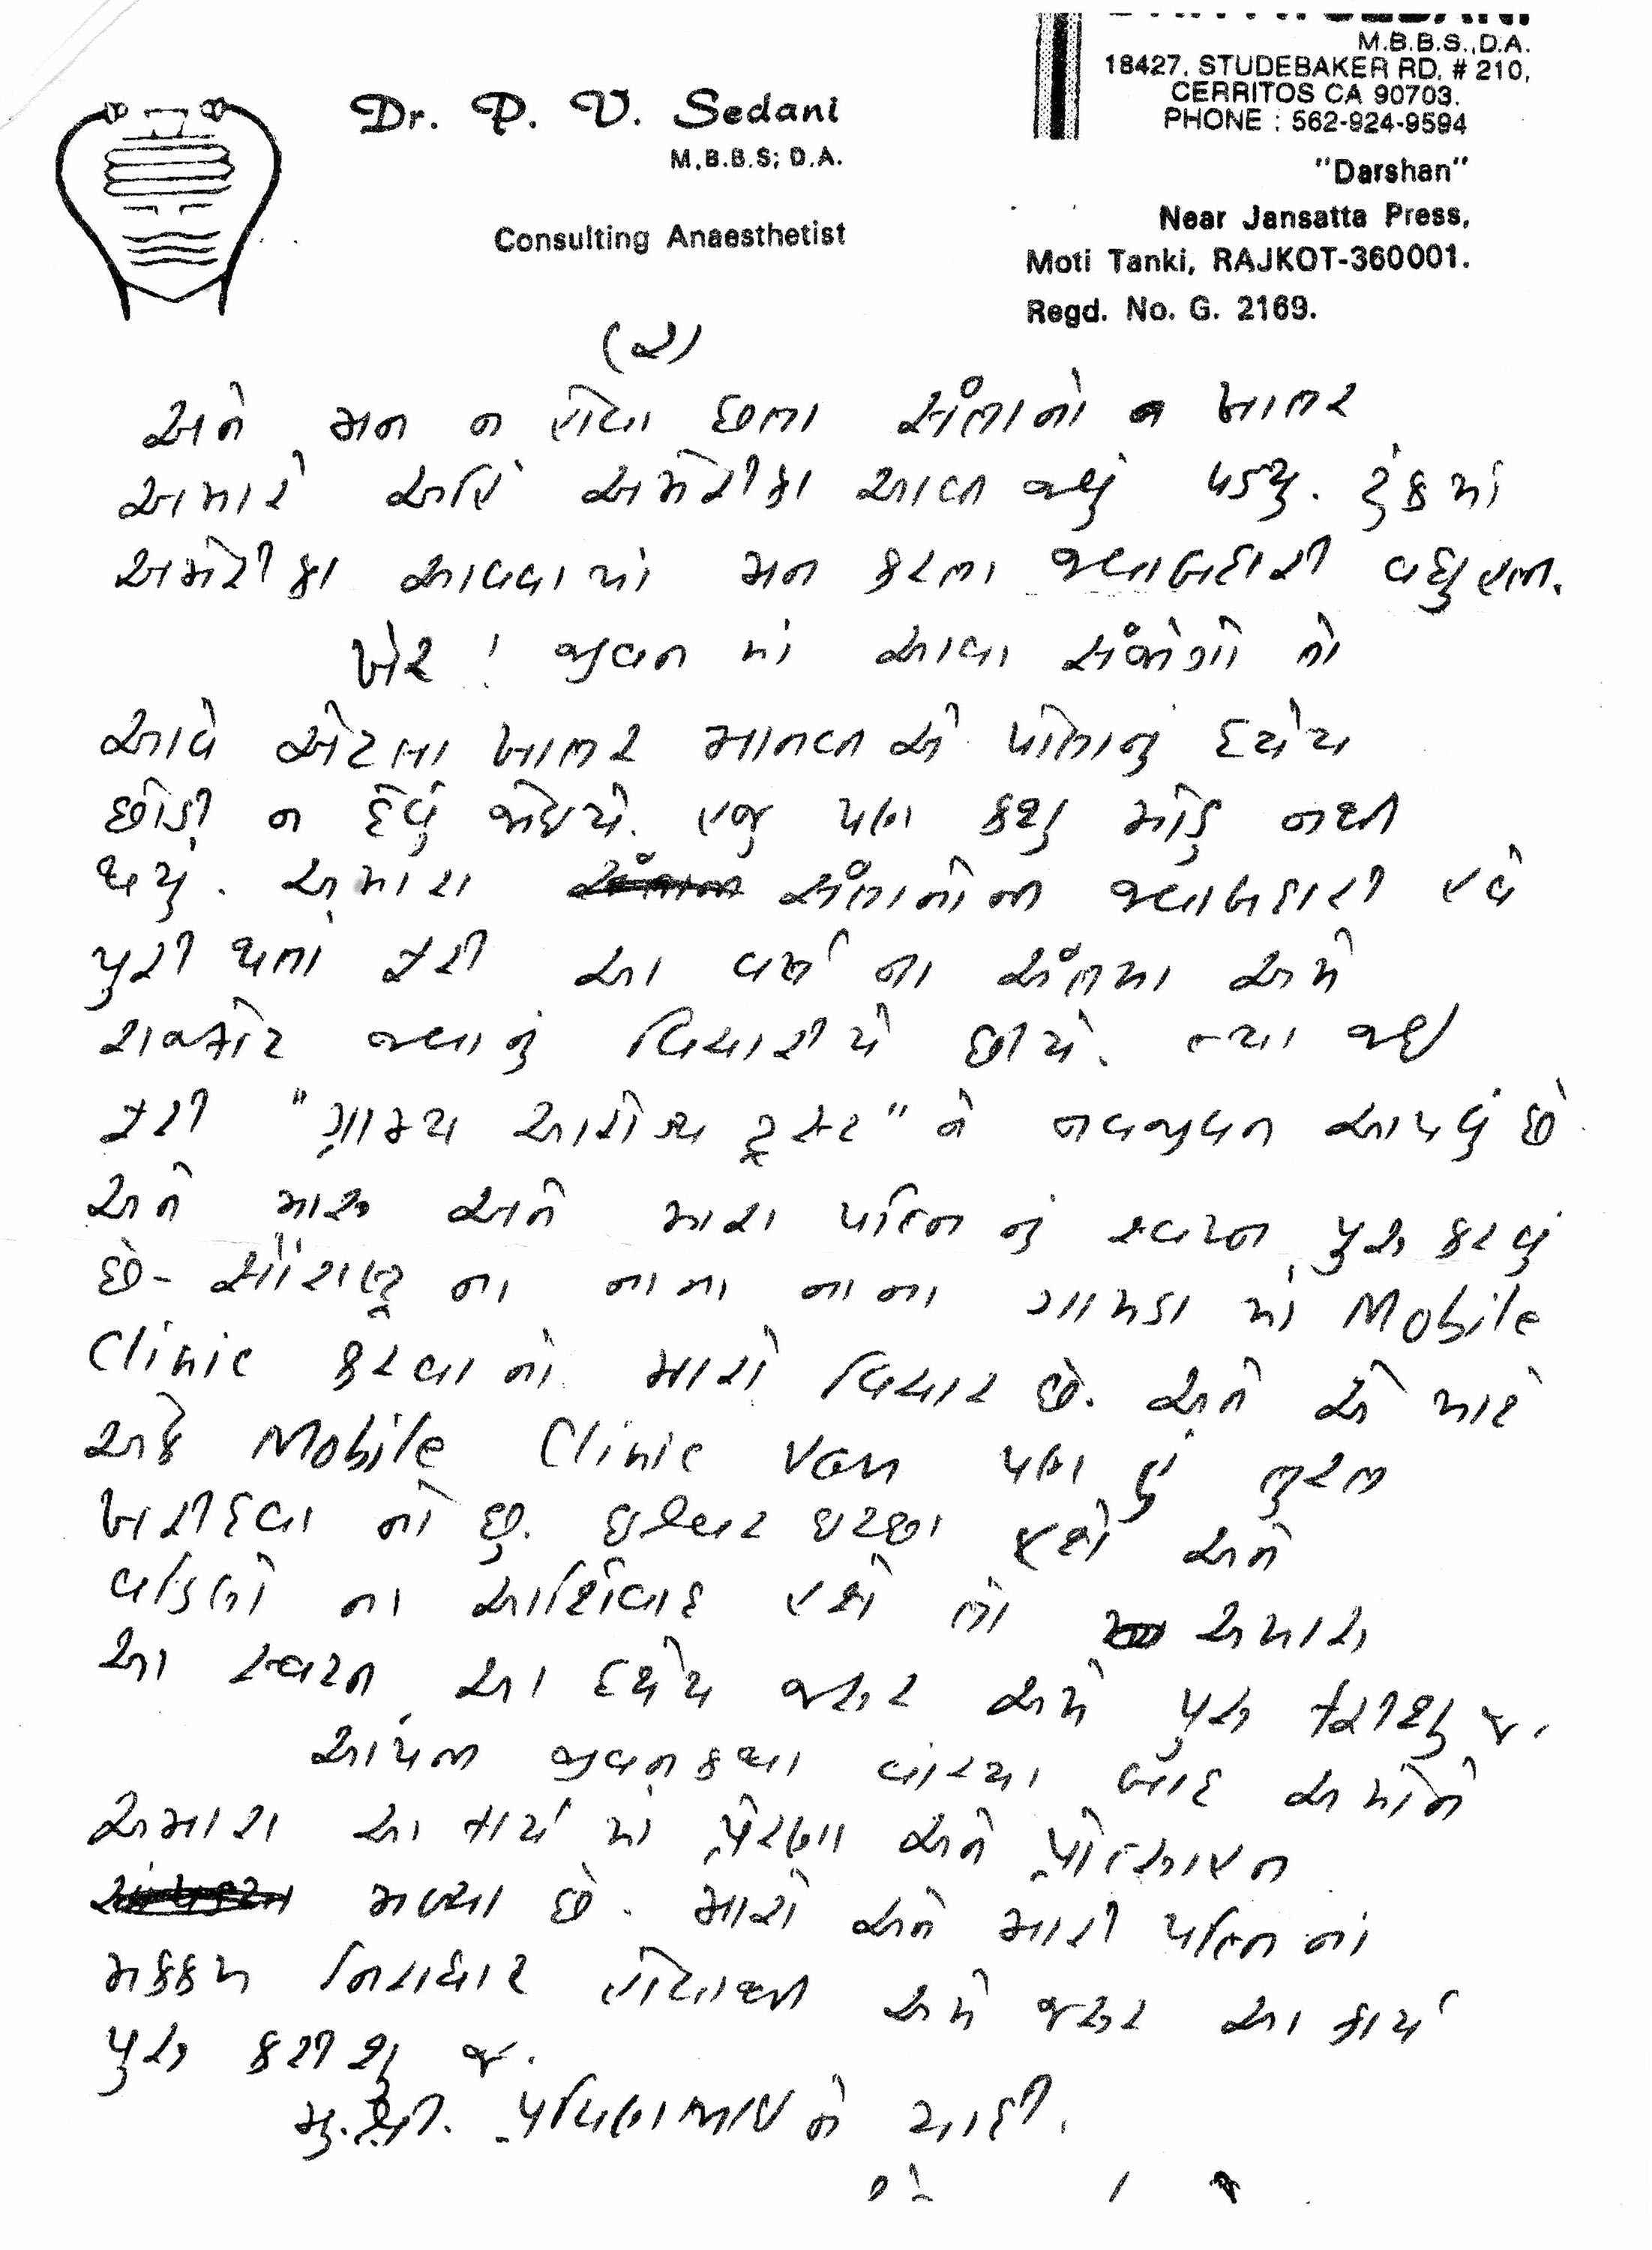 Dr. P. V. Sedani
M.B.B.S; D.A.
Consulting Anaesthetist
M.B.B.S.,D.A.
18427, STUDEBAKER RD. # 210,
CERRITOS CA 90703.
PHONE : 562-924-9594
"Darshan"
Near Jansatta Press,
Moti Tanki, RAJKOT-360001.
Regd. No. G. 2169.
(૨)
અને મન ન હોવા છતા સંતાનો ખાતર
અમારે અહિં અમેરીકા આવી જવું પડયુ. ટુંકમાં
અમેરીકા આવવામાં મન કરતા જવાબદારી વધુ હતી.
ખેર ! જીવન માં આવા સંજોગો તો
આવે એટલા ખાતર માનવી એ પોતાનું દયેય
છોડી ન દેવું જોઇયે. હજુ પણ કશુ મોડુ નથી
થયું. અમારા સંતાનોની જવાબદારી હવે
પુરી થતાં ફરી આ વર્ષ ના અંતમા અમે
રાજકોટ જવાનું વિચારીયે છીયે. ત્યા જઇ
ફરી "ગ્રામ્ય આરોગ્ય ટ્રસ્ટ" ને નવજીવન આપવું છે
અને મારૂ અને મારા પત્નિ નું સ્વપ્ન પુરૂ કરવું
છે- સૌરાષ્ટ્ર ના નાના નાના ગામડા માં Mobile
Clinic કરવાનો મારો વિચાર છે. અને એ માટે
એક Mobile Clinic Van પણ હું તુરત
ખરીદવા નો છુ. ઇશ્વર ઇચ્છા હશે અને
વડિલો ના આર્શિવાદ હશે તો અમારૂ
આ સ્વપ્ન આ દયેય જરૂર અમે પુરૂ કરીશુ જ.
આપની જીવનકથા વાંચ્યા બાદ અમોને
અમારા આ કાર્ય માં પ્રેરણા અને પ્રોત્સાહન
મળ્યા છે. મારો અને મારી પત્નિ નાં
મક્કમ નિરાધાર હોવાથી અમે જરૂર આ કાર્ય
પુરૂ કરીશુ જ.
મુ.શ્રી. પ્રવિણભાઇ ને યાદી.